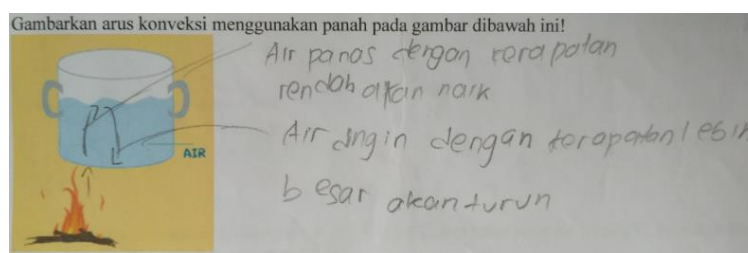 Gambarkan arus konveksi menggunakan panah pada gambar dibawah ini!
Air panas dengan kerapatan
rendah akan naik
Air dingin dengan kerapatan lebih
besar akan turun
AIR